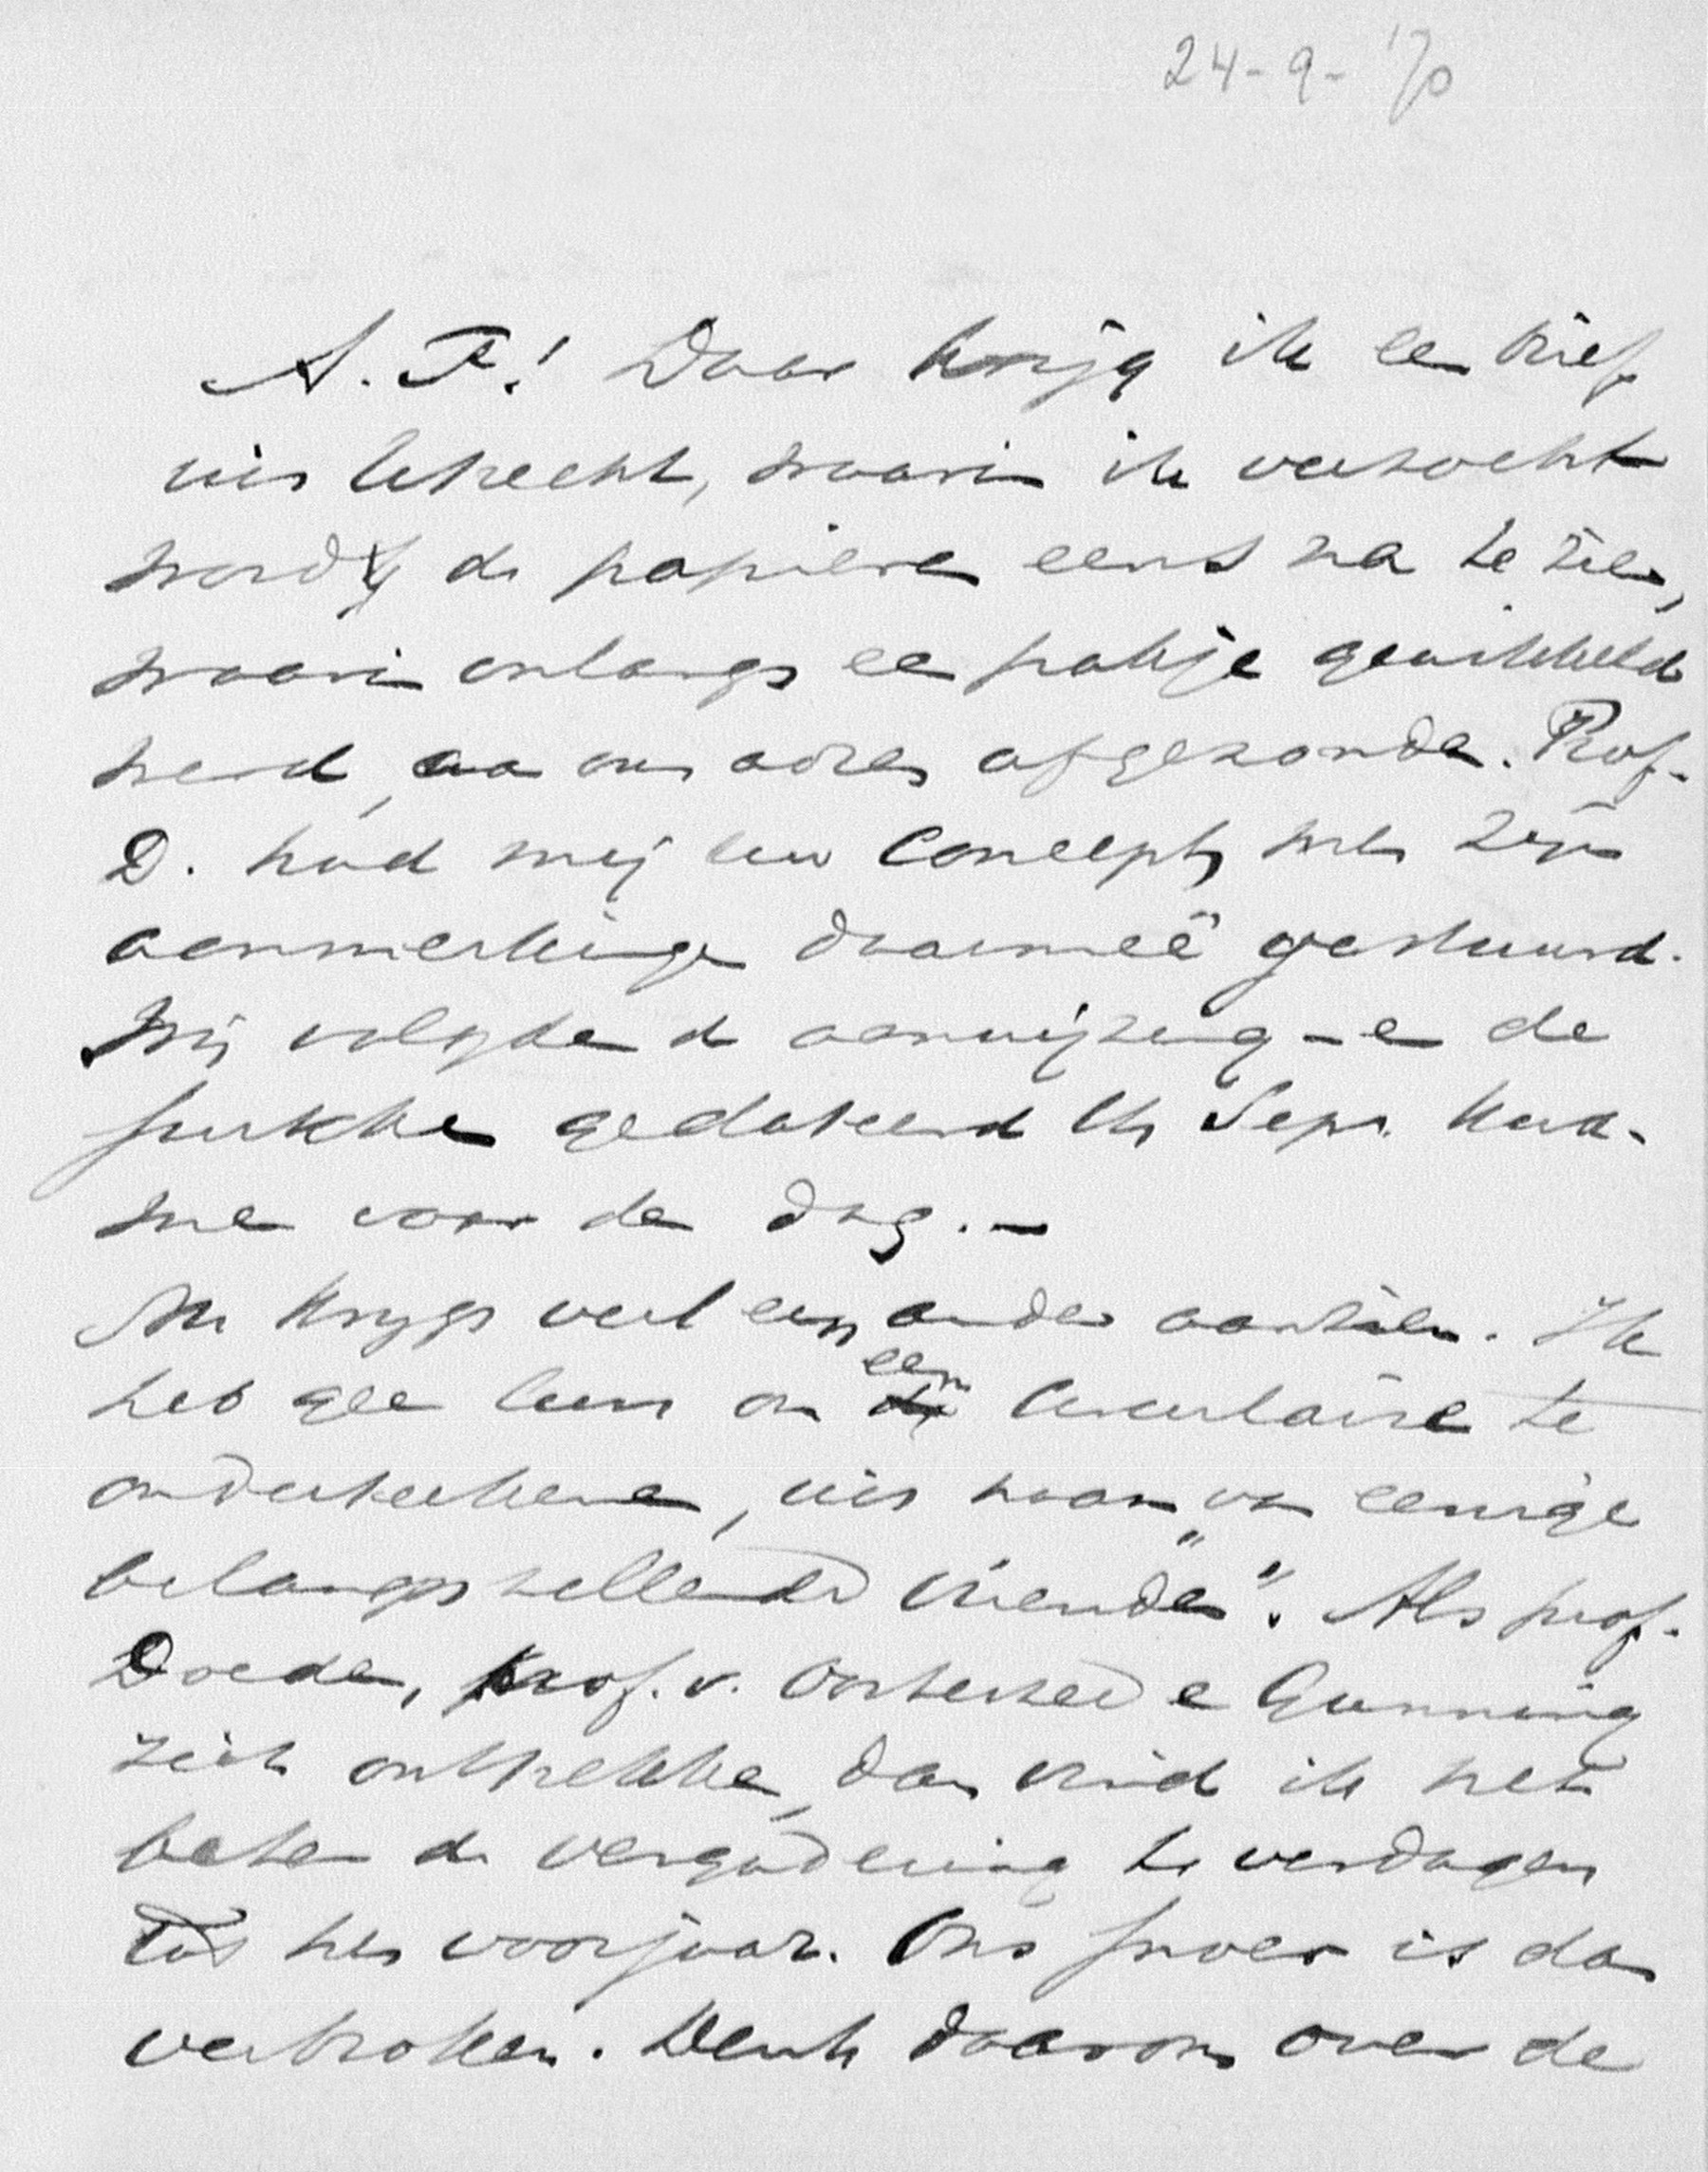 24-9-'70
A. F.! Daar krijg ik een brief
uit Utrecht, waarin ik verzocht
word de papieren eens na te zien,
waarin onlangs een pakje gewikkeld
werd, aan ons adres afgezonden. Prof.
D. had mij uw Concept, met zijn
aanmerkingen daarmeê gestuurd.
Wij volgden de aanwijzing - en de
stukken gedateerd Sept. kwa-
men voor den dag. -
Nu krijgt veel een ander aanzien. Ik
heb geen lust om een Circulaire te
onderteekenen, uit naam van eenige
"belangstellende vrienden". Als prof.
Doedes, prof. v. Oosterzee en Gunning
zich onttrekken, dan vind ik het
beter de vergadering te verdagen
tot het voorjaar. Ons snoer is dan
verbroken. Denk daarom over de